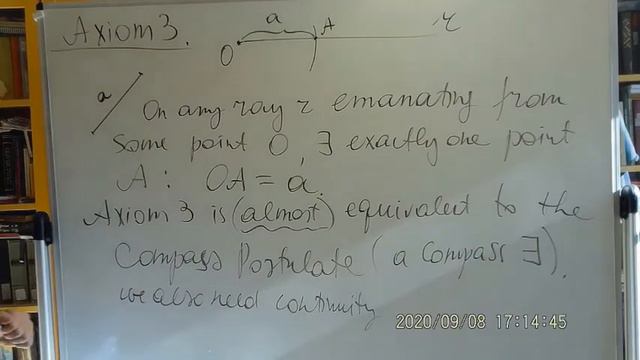 Axiom 3.
a
A
r
O
a
On any ray r emanating from
some point O, ∃ exactly one point
A: OA = a.
Axiom 3 is (almost) equivalent to the
Compass Postulate (a compass ∃).
we also need continuity
2020/09/08 17:14:45